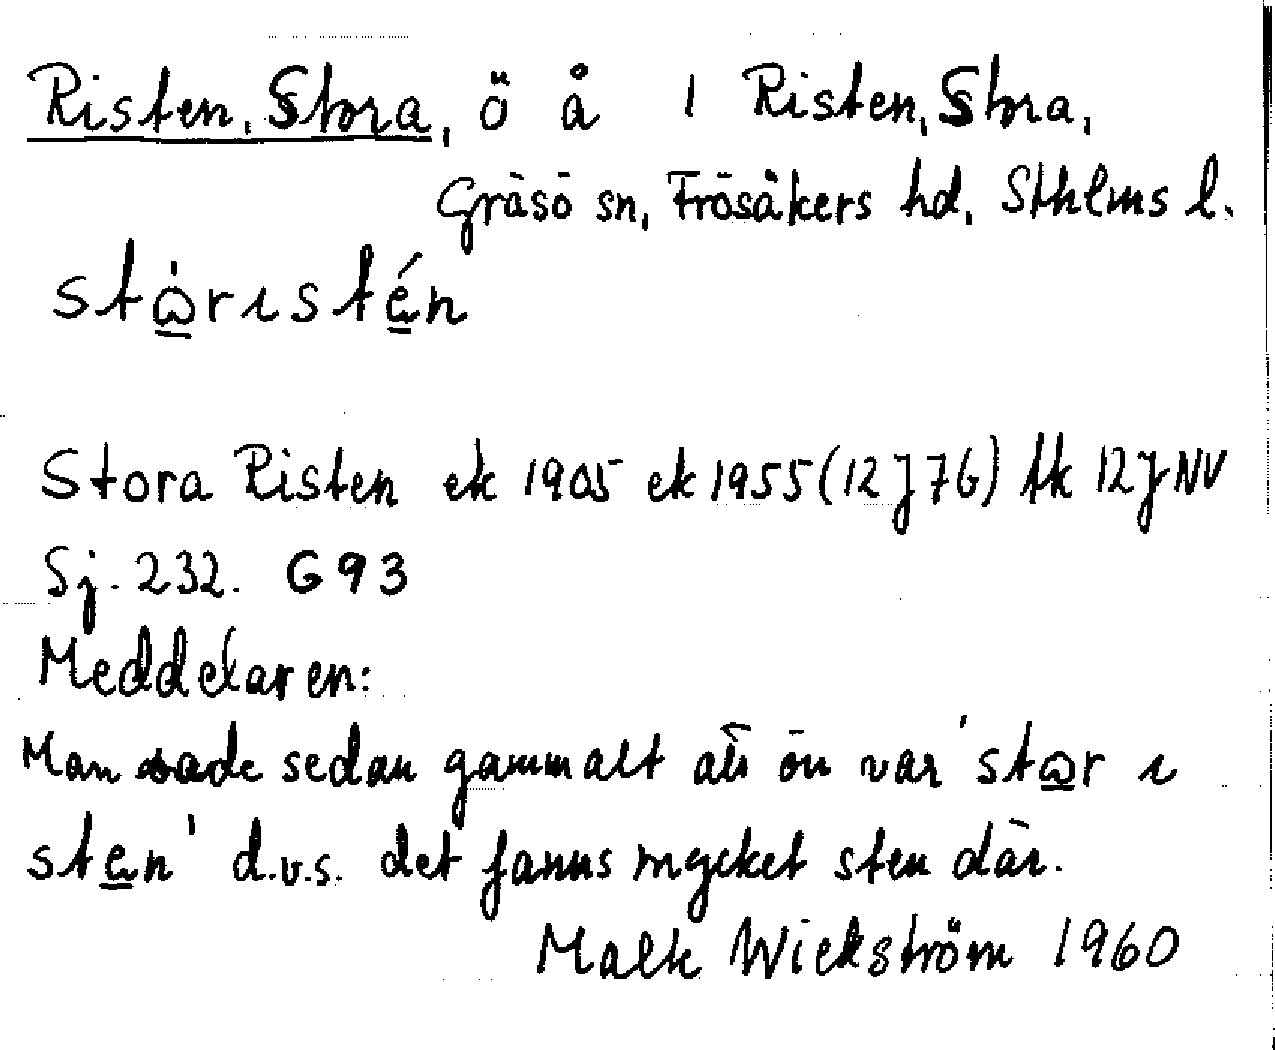 Risten, Stora, ö å 1 Risten, Stora,
Gräsö sn, Frösåkers hd, Sthlms l.
Stora Risten ek 1905 ek 1955 (12 J 7 G) tk 12 J NV
Sj. 232. G 93
Meddelaren:
Man sade sedan gammalt att ön var 'star ı
sten' d.v.s. det fanns mycket sten där.
Malte Wickström 1960